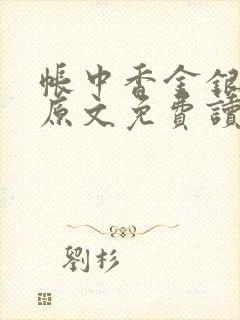 帳中香金銀
原文免費讀
劉杉